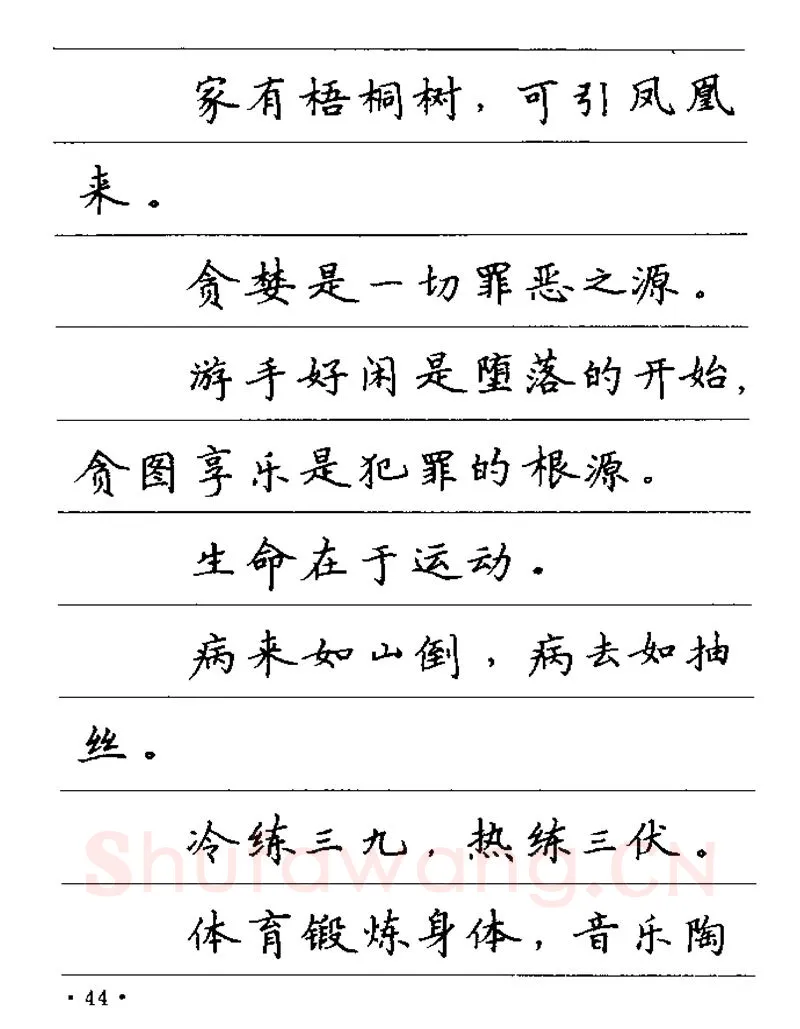 家有梧桐树，可引凤凰
来。
贪婪是一切罪恶之源。
游手好闲是堕落的开始，
贪图享乐是犯罪的根源。
生命在于运动。
病来如山倒，病去如抽
丝。
冷练三九，热练三伏。
Shufawang.CN
体育锻炼身体，音乐陶
·44·